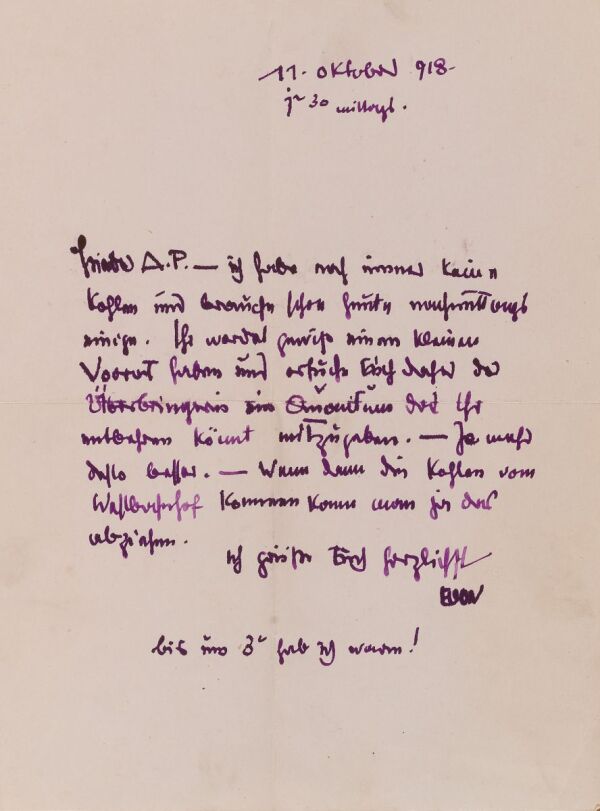 11. Oktober 918-
1ʰ 30 mittags.
Liebe A.P. — ich habe noch immer keine
Kohlen und brauche schon heute nachmittags
einige. Ihr werdet gewiß einen kleinen
Vorrat haben und ersuche Euch daher der
Überbringerin ein Quantum das Ihr
entbehren könnt mitzugeben. — Je mehr
desto besser. — Wenn dann die Kohlen vom
Westbahnhof kommen kann man ja das
abziehen.
Ich grüße Euch herzlichst
bis um 3ʰ hab ich warm!